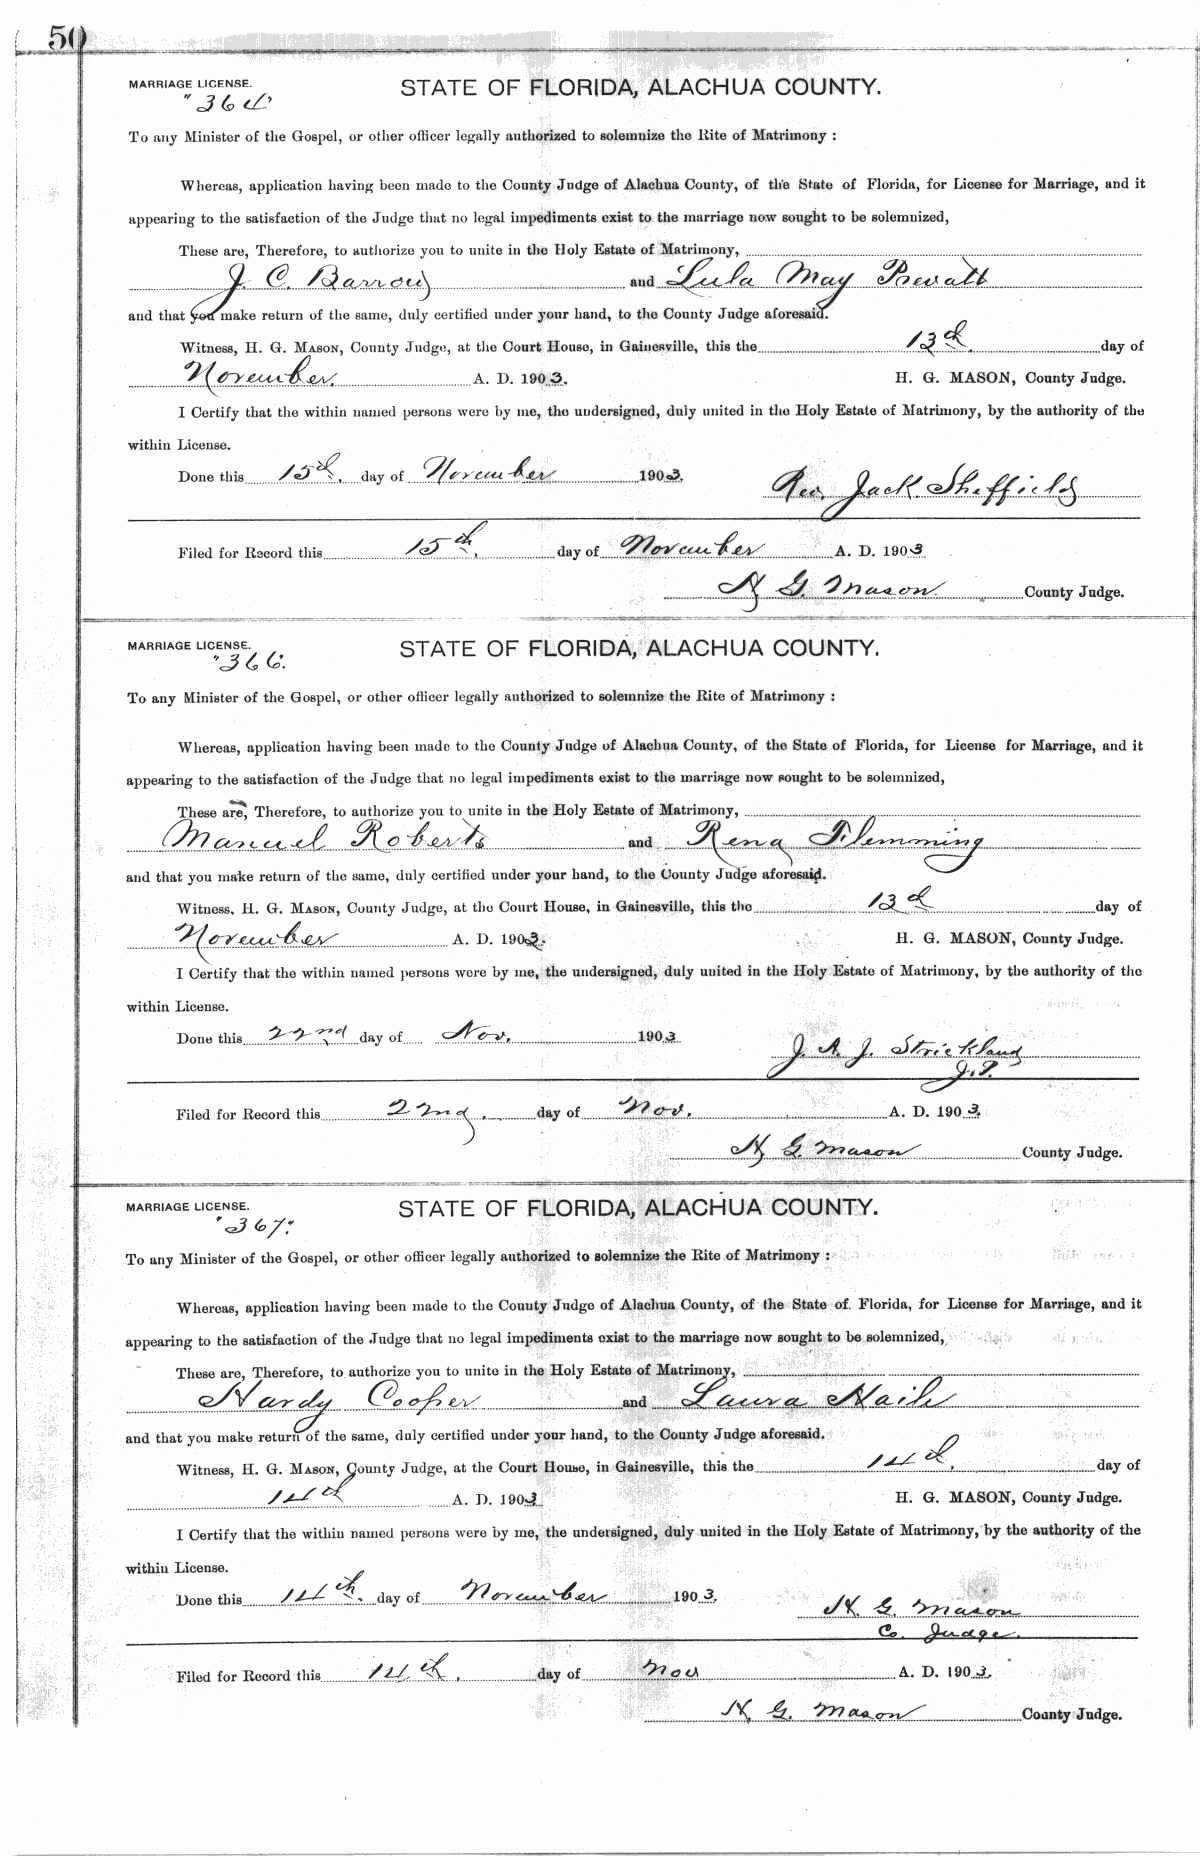 50
MARRIAGE LICENSE. STATE OF FLORIDA, ALACHUA COUNTY.
"364"
To any Minister of the Gospel, or other officer legally authorized to solemnize the Rite of Matrimony :
Whereas, application having been made to the County Judge of Alachua County, of the State of Florida, for License for Marriage, and it
appearing to the satisfaction of the Judge that no legal impediments exist to the marriage now sought to be solemnized,
These are, Therefore, to authorize you to unite in the Holy Estate of Matrimony,
J. C. Barrow and Lula May Prevatt
and that you make return of the same, duly certified under your hand, to the County Judge aforesaid.
Witness, H. G. MASON, County Judge, at the Court House, in Gainesville, this the 13th. day of
November. A. D. 1903. H. G. MASON, County Judge.
I Certify that the within named persons were by me, the undersigned, duly united in the Holy Estate of Matrimony, by the authority of the
within License.
Done this 15th. day of November 1903. Rev. Jack Sheffield
Filed for Record this 15th. day of November A. D. 1903
H G. Mason County Judge.
MARRIAGE LICENSE. STATE OF FLORIDA, ALACHUA COUNTY.
"366.
To any Minister of the Gospel, or other officer legally authorized to solemnize the Rite of Matrimony :
Whereas, application having been made to the County Judge of Alachua County, of the State of Florida, for License for Marriage, and it
appearing to the satisfaction of the Judge that no legal impediments exist to the marriage now sought to be solemnized,
These are, Therefore, to authorize you to unite in the Holy Estate of Matrimony,
Manuel Roberts and Rena Flemming
and that you make return of the same, duly certified under your hand, to the County Judge aforesaid.
Witness, H. G. MASON, County Judge, at the Court House, in Gainesville, this the 13th day of
November A. D. 1903. H. G. MASON, County Judge.
I Certify that the within named persons were by me, the undersigned, duly united in the Holy Estate of Matrimony, by the authority of the
within License.
Done this 22nd day of Nov. 1903 J. A. J. Strickland
J.P.
Filed for Record this 22nd. day of Nov. A. D. 1903.
H G. Mason County Judge.
MARRIAGE LICENSE. STATE OF FLORIDA, ALACHUA COUNTY.
"367"
To any Minister of the Gospel, or other officer legally authorized to solemnize the Rite of Matrimony :
Whereas, application having been made to the County Judge of Alachua County, of the State of Florida, for License for Marriage, and it
appearing to the satisfaction of the Judge that no legal impediments exist to the marriage now sought to be solemnized,
These are, Therefore, to authorize you to unite in the Holy Estate of Matrimony,
Hardy Cooper and Laura Haile
and that you make return of the same, duly certified under your hand, to the County Judge aforesaid.
Witness, H. G. MASON, County Judge, at the Court House, in Gainesville, this the 14th. day of
14th A. D. 1903 H. G. MASON, County Judge.
I Certify that the within named persons were by me, the undersigned, duly united in the Holy Estate of Matrimony, by the authority of the
within License.
Done this 14th. day of November 1903. H. G. Mason
Co. Judge.
Filed for Record this 14th. day of Nov A. D. 1903.
H. G. Mason County Judge.